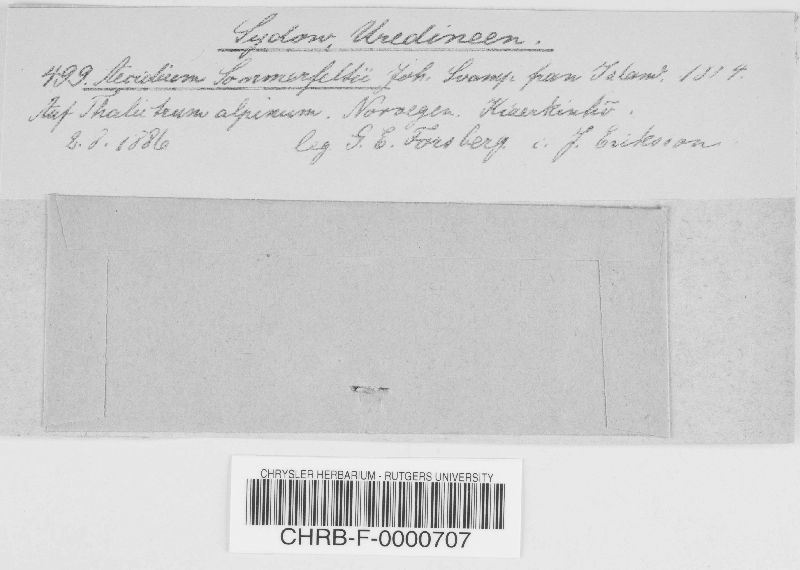 Sydow, Uredineen.
499. Aecidium Sommerfeltii Joh. Svamp. fran Island. 1884.
Auf Thalictrum alpinum. Norvegen.
2.8.1886 leg G. E. Forsberg. c. J. Eriksson
CHRYSLER HERBARIUM - RUTGERS UNIVERSITY
CHRB-F-0000707